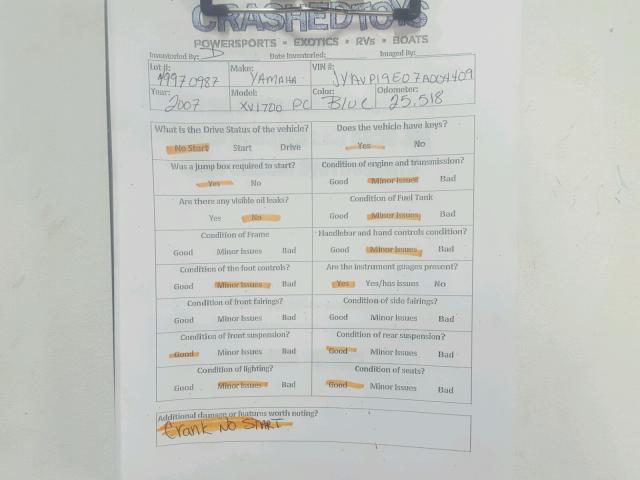 CRASHEDTOYS
POWERSPORTS • EXOTICS • RVs • BOATS
Inventoried By: D Date Inventoried: Imaged By:
Lot #: 49970987 Make: YAMAHA VIN #: JYAVP19E07A004409
Year: 2007 Model: XV1700 PC Color: Blue Odometer: 25,518
What is the Drive Status of the vehicle? Does the vehicle have keys?
No Start Start Drive Yes No
Was a jump box required to start? Condition of engine and transmission?
Yes No Good Minor Issues Bad
Are there any visible oil leaks? Condition of Fuel Tank
Yes No Good Minor Issues Bad
Condition of Frame Handlebar and hand controls condition?
Good Minor Issues Bad Good Minor Issues Bad
Condition of the foot controls? Are the instrument guages present?
Good Minor Issues Bad Yes Yes/has issues No
Condition of front fairings? Condition of side fairings?
Good Minor Issues Bad Good Minor Issues Bad
Condition of front suspension? Condition of rear suspension?
Good Minor Issues Bad Good Minor Issues Bad
Condition of lighting? Condition of seats?
Good Minor Issues Bad Good Minor Issues Bad
Additional damage or features worth noting?
Crank No START